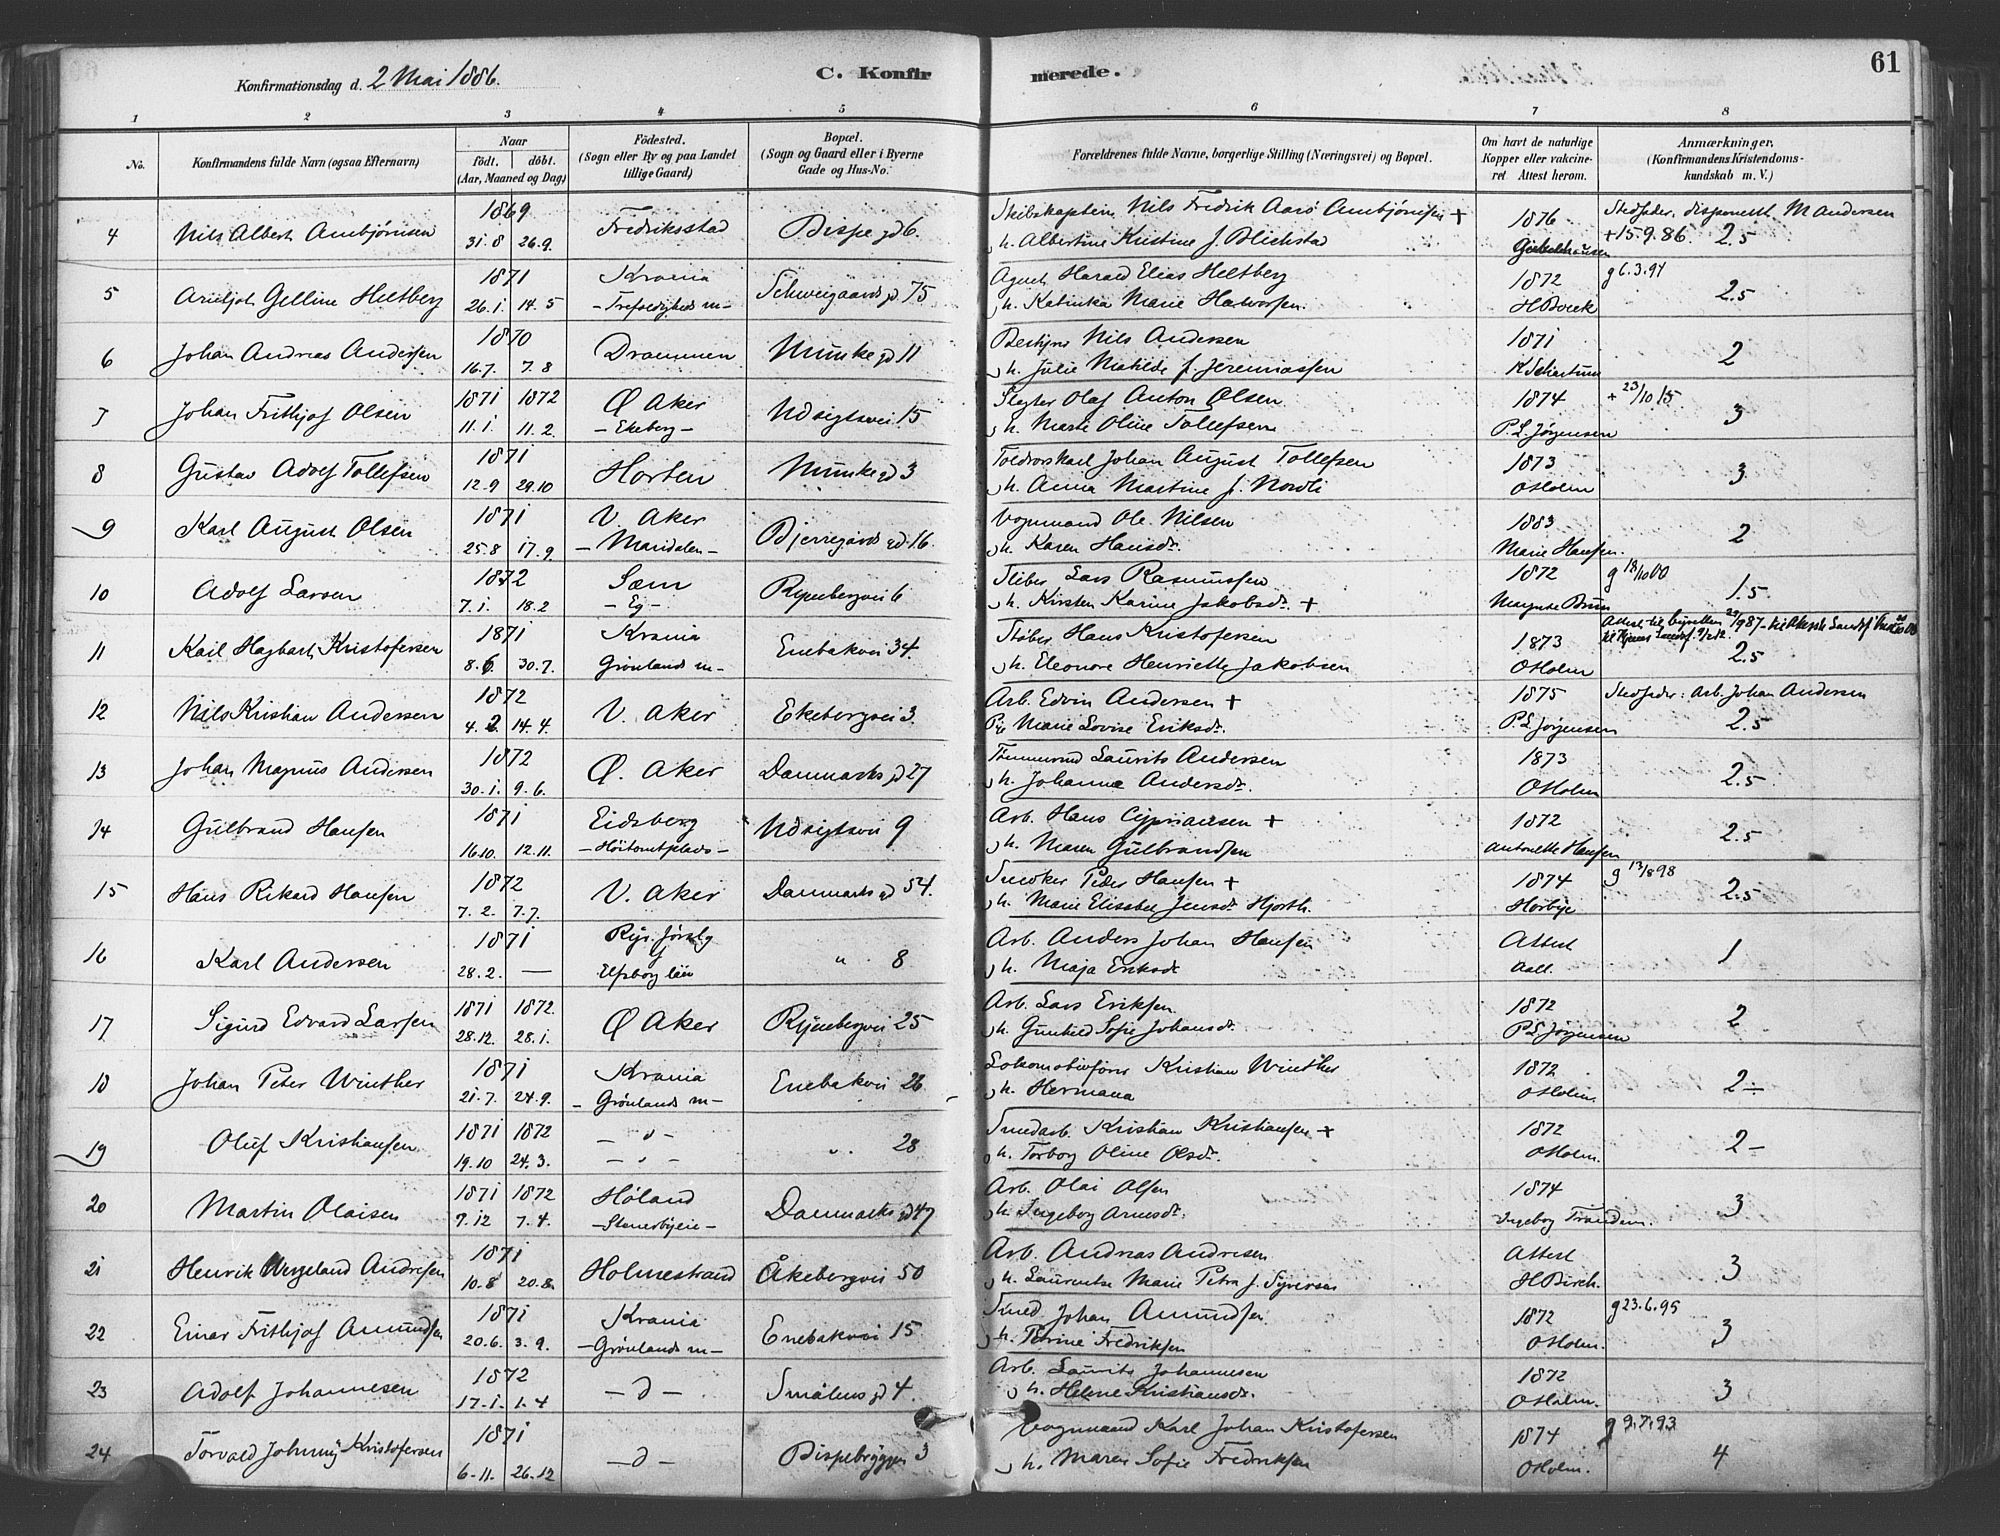 Konfirmationsdag d. 2 Mai 1886.
C. Konfir merede.
61
1 2 3 4 5 6 7 8
No.
Konfirmandens fulde Navn (ogsaa Efternavn)
Naar
födt. döbt.
(Aar, Maaned og Dag)
Födested.
(Sogn eller By og paa Landet
tillige Gaard)
Bopæl.
(Sogn og Gaard eller i Byerne
Gade og Hus-No.
Forældrenes fulde Navne, borgerlige Stilling (Næringsvei) og Bopæl.
Om havt de naturlige
Kopper eller vakcine-
ret. Attest herom.
Anmærkninger.
(Konfirmandens Kristendoms-
kundskab m. V.)
4 Nils Albert Ambjörnsen 1869 31.8 26.9. Fredriksstad Bispegd 6.
Skibskaptein Nils Fredrik Aarö Ambjörnsen +
h. Albertine Kristine f. Blichstad
1876
Stedfader: disponent M Andersen
+ 15.9.86. 2.5
5 Gelline Heltberg 1871 26.1. 14.5 Krania – Trefoldigheds m – Schweigaards gd 75
Agent Harald Elias Heltberg
h. Katinka Marie Halvorsen.
1872
g 6.3.94
2.5
6 Johan Andreas Andersen 1870 16.7. 7.8 Drammen Munkegd 11
Nils Andersen
h. Julie Matilde f. Jeremiassen
1871
K Schartum
2
7 Johan Frithjof Olsen 1871 1872 11.1. 11.2. Ø Aker – Ekeberg – Udsigtsvei 15
Slagter Olaf Anton Olsen
h. Marte Oline Tollefsen
1874
P.L. Jørgensen
+ 23/10 15
3
8 Gustav Adolf Tollefsen 1871 12.9 29.10 Horten Munkegd 3
Johan August Tollefsen
h. Anna Martine f. Nordli
1873
O Holm
3
9 Karl August Olsen 1871 25.8 17.9. V. Aker – Maridalen – Bjerregårds gd. 16.
Vognmand Ole Nilsen
h. Karen Hansdr.
1883
Marie Hansen.
2
10 Adolf Larsen 1872 7.1. 18.2 Sæm – Eg – Ryenbergvei 6
Lars Rasmussen
h. Kirsten Karine Jakobsdr. +
1872
g 18/10 00
1.5
11 Karl Hagbart Kristofersen 1871 8.6 30.7. Krania Grönlands m – Enebakvei 34.
Støber Hans Kristofersen
h. Eleonore Henriette Jakobsen
1873
O Holm
2.5
12 Nils Kristian Andersen 1872 4.2 14.4. V. Aker Ekebergvei 3.
Arb. Edvin Andersen +
Pe Marie Lovise Eriksdr.
1875
P.L. Jørgensen
Stedfader: Arb. Johan Andersen
2.5
13 Johan Magnus Andersen 1872 30.1. 9.6. Ø. Aker Danmarks gd 27
Tømmermd Laurits Andersen
h. Johanna Andersdr.
1873
O Holm
2.5
14 Gulbrand Hansen 1871 16.10. 12.11. Eidsberg – Höitomtplads – Udsigtsvei 9
Arb. Hans Cypriansen +
h. Maren Gulbrandsen
1872
Antonette Hansen
2.5
15 Hans Rikard Hansen 1872 7.2. 7.7. V. Aker Danmarks gd 54.
Snedker Peder Hansen +
h. Marie Elisabet Jensdr. Hjorth.
1874
Hörbye
g 13/8 98
2.5
16 Karl Andersen 1871 28.2. — Elfsborg län „ 8
Arb. Anders Johan Hansen
h. Maja Eriksdr
Attest
Aall.
1
17 Sigurd Edvard Larsen 1871 1872. 28.12. 28.1. Ø Aker Ryenbergvei 25
Arb. Lars Eriksen
h. Gunhild Sofie Johansdr.
1872
P.L. Jørgensen
2
18 Johan Peter Winther 1871 21.7. 24.9. Krania – Grönlands m – Enebakvei 26
Lokomotivförer Kristian Winther
h. Hermana
1872
O Holm.
2 –
19 Oluf Kristiansen 1871 1872 19.10 24.3. – „ – – „ – „ 28
Smedarb. Kristian Kristiansen +
h. Torborg Oline Olsdr.
1872
O Holm.
2 –
20 Martin Olaisen 1871 1872 7.12 7.4. Höland – Stenerbyeie – Danmarks gd 47
Arb. Olai Olsen
h. Ingeborg Arnesdr.
1874
Ingeborg Trandem.
3
21 Henrik Wergeland Andresen 1871 10.8 20.8. Holmestrand Åkebergvei 50
Arb. Andreas Andresen
h. Laurentze Marie Petra f. Syversen
Attest
H Birch.
3
22 Einar Frithjof Amundsen 1871 20.6. 3.9. Krania – Grönlands m – Enebakvei 15
Smed Johan Amundsen
h. Petrine Fredriksen
1872
O Holm.
g 23.6.95
3
23 Adolf Johannesen 1872 17.1. 1.4 – d – Smålens gd 4.
Arb. Laurits Johannesen
h. Helene Kristiansdr.
1872
O Holm.
3
24 Torvald Johnny Kristofersen 1871 6.11. 26.12 – d – Bispebryggen 3
Vognmand Karl Johan Kristofersen
h. Maren Sofie Fredriksen
1874
O Holm.
g 9.7.93
4